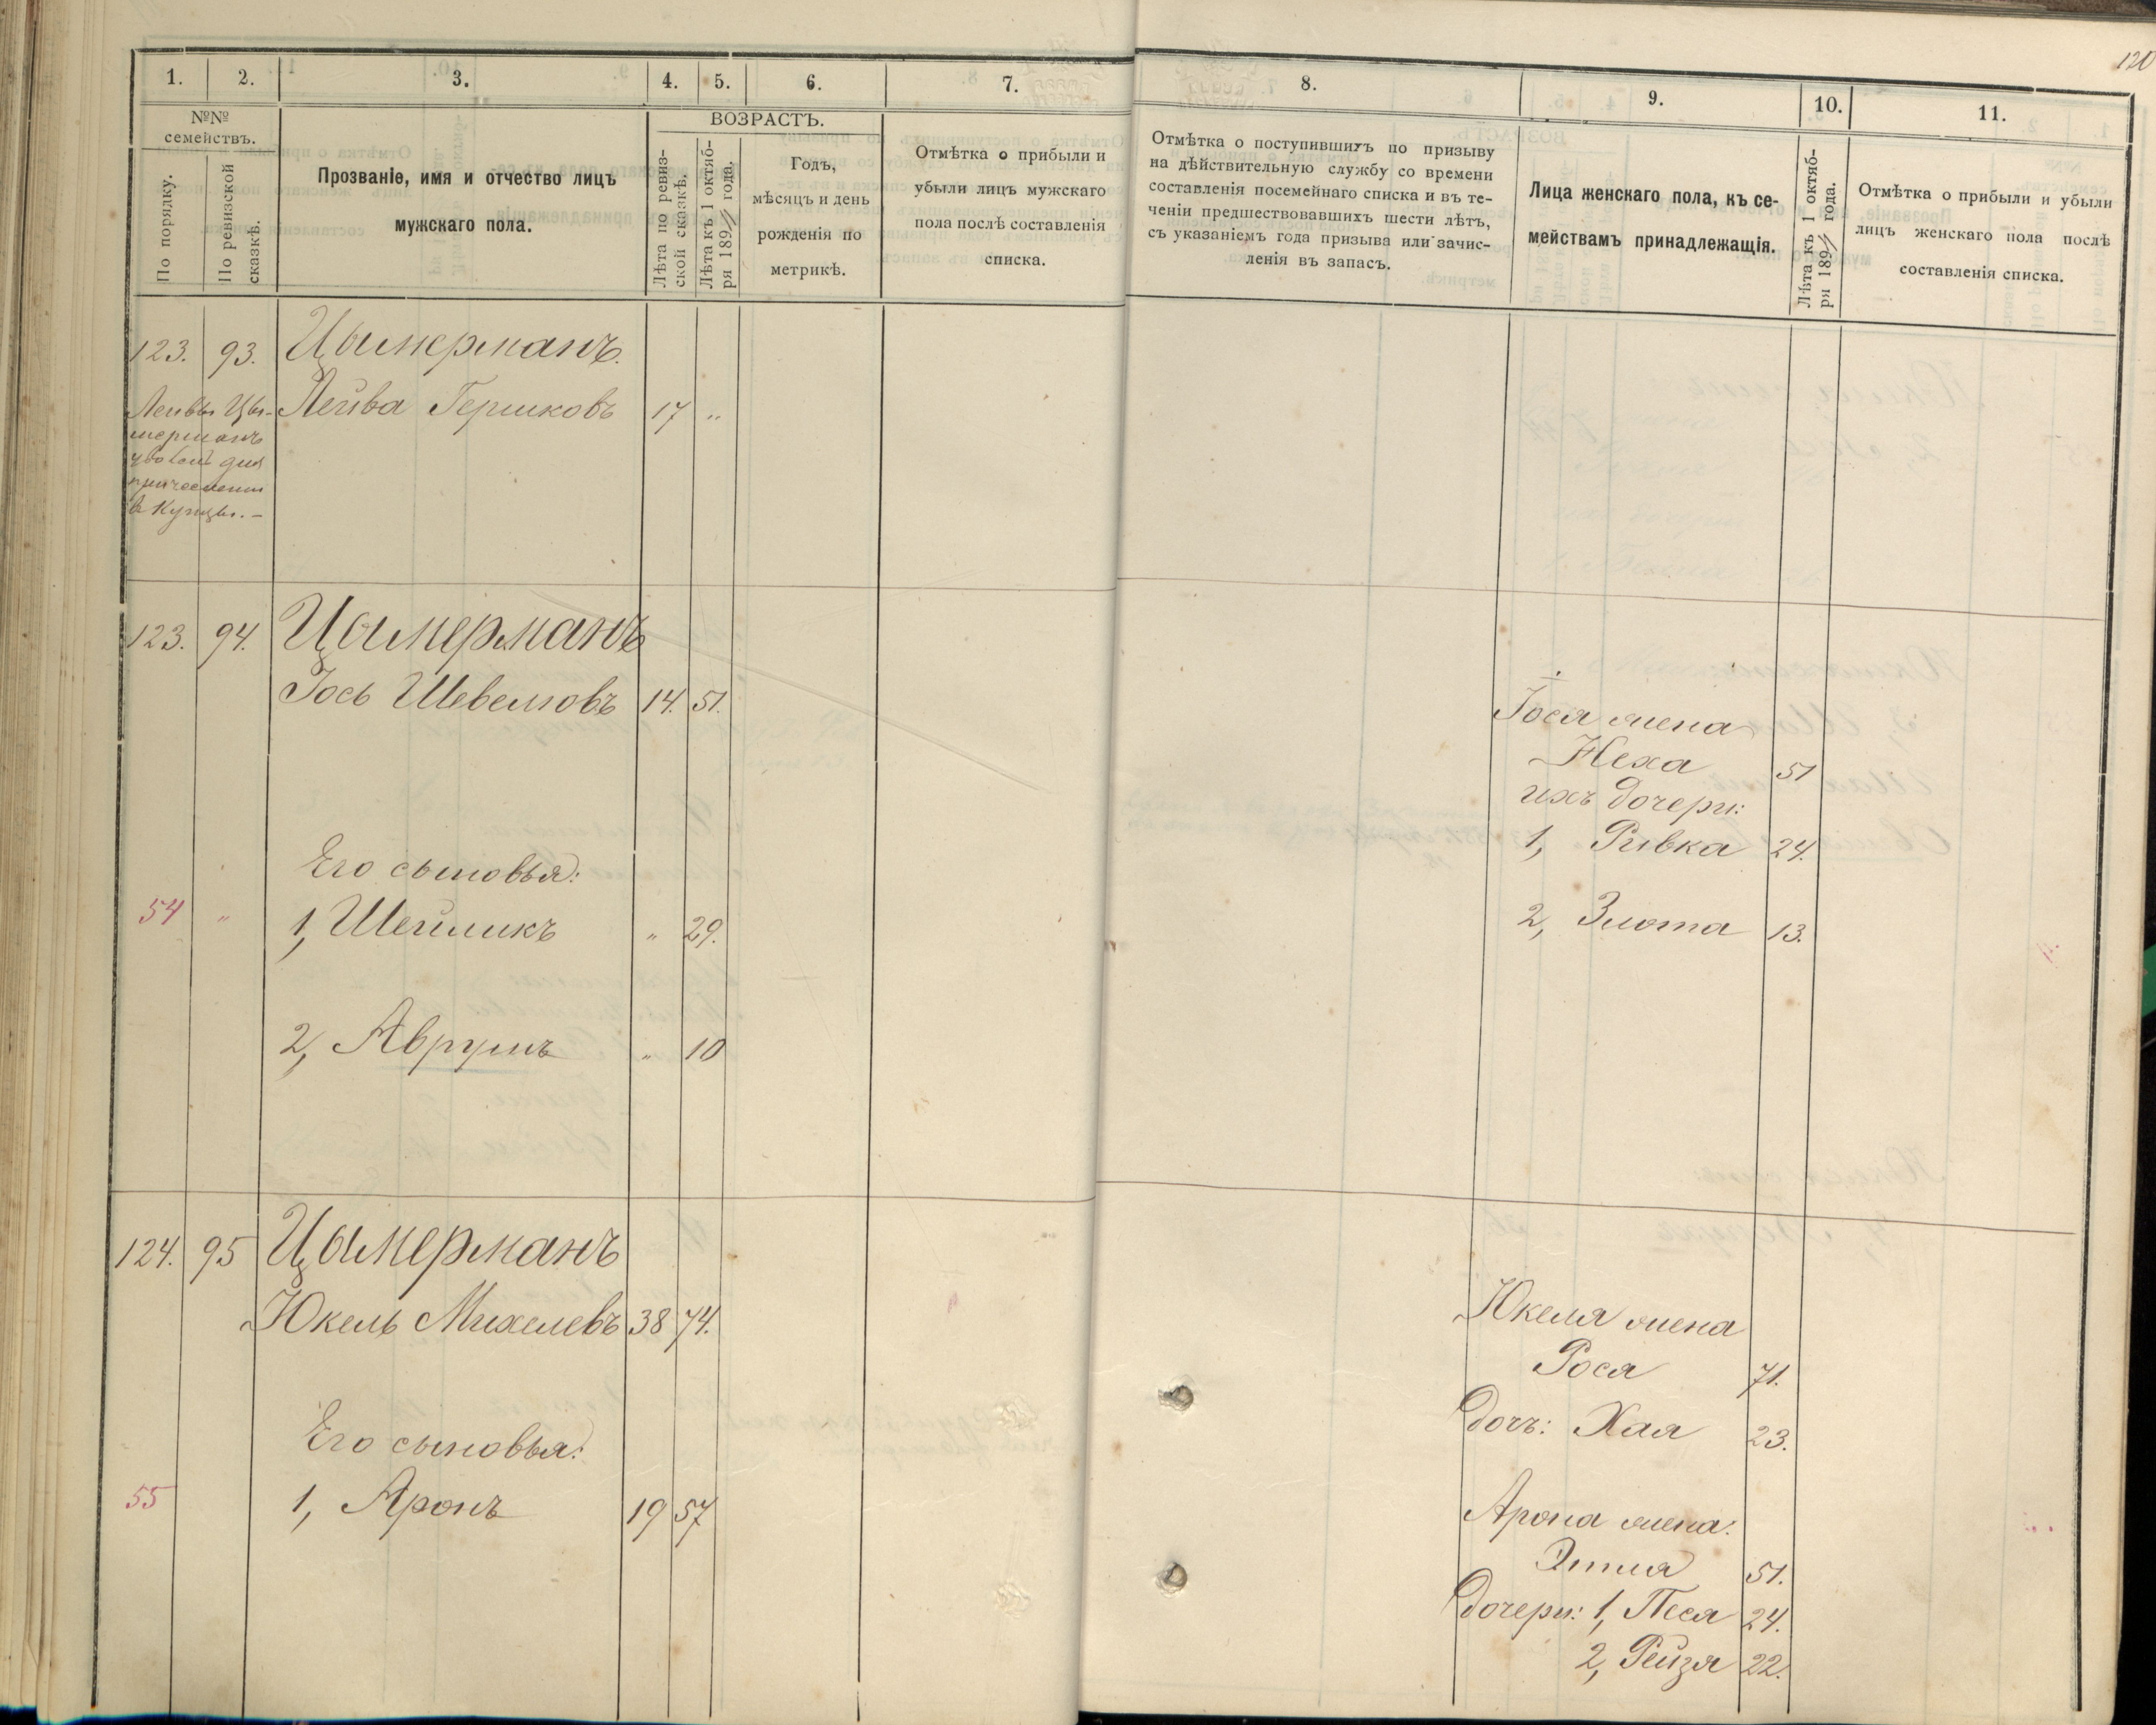 120
1.
2.
3.
4.
5.
6.
7.
№№
семействъ.
По порядку.
По ревизской
сказкѣ.
Прозваніе, имя и отчество лицъ
мужскаго пола.
ВОЗРАСТЪ.
Лѣта по ревиз-
ской сказкѣ.
Лѣта къ 1 октяб-
ря 189 года.
Годъ,
мѣсяцъ и день
рожденія по
метрикѣ.
Отмѣтка о прибыли и
убыли лицъ мужскаго
пола послѣ составленія
списка.
123. 93. Цымерманъ.
Лейва Гершковъ 17 "
Лейвы Цы-
мерманъ
уволенъ для
причисления
в купцы. —
123. 94. Цымерманъ
Іось Шевелювъ 14. 51.
Его сыновья:
54 " 1, Шейликъ " 29.
2, Аврумъ " 10
124. 95 Цымерманъ
Юкель Михелевъ 38 74.
Его сыновья:
55 1, Аронъ 19 57
8.
9.
10.
11.
Отмѣтка о поступившихъ по призыву
на дѣйствительную службу со времени
составленія посемейнаго списка и въ те-
ченіи предшествовавшихъ шести лѣтъ,
съ указаніемъ года призыва или зачис-
ленія въ запасъ.
Лица женскаго пола, къ се-
мействамъ принадлежащія.
Лѣта къ 1 октяб-
ря 189 года.
Отмѣтка о прибыли и убыли
лицъ женскаго пола послѣ
составленія списка.
Іося жена
Неха 51
ихъ дочери:
1, Ривка 24.
2, Злота 13.
Юкеля жена
Рося 71.
дочь: Хая 23.
Арона жена:
Этля 51.
дочери: 1, Песя 24.
2, Рейзя 22.